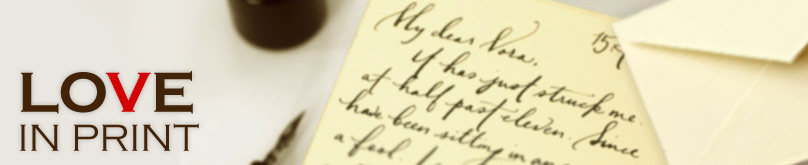 LOVE
IN PRINT
My dear Nora,
It has just struck me.
at half past eleven. Since
have been sitting in an
a fool. I